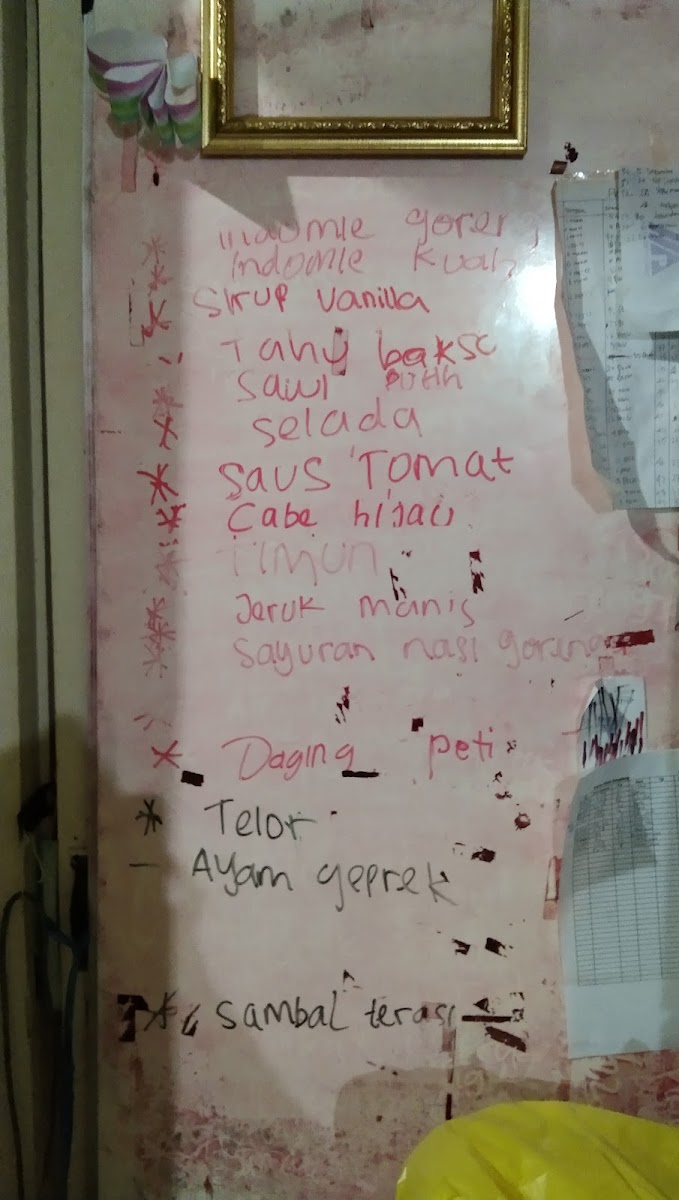 Indomie goreng
Indomie kuah
Sirup vanilla
Tahu bakso
Sawi putih
selada
saus Tomat
Cabe hijau
TIMUN
Jeruk manis
Sayuran nasi goreng
Daging peti
Telor
Ayam geprek
sambal terasi